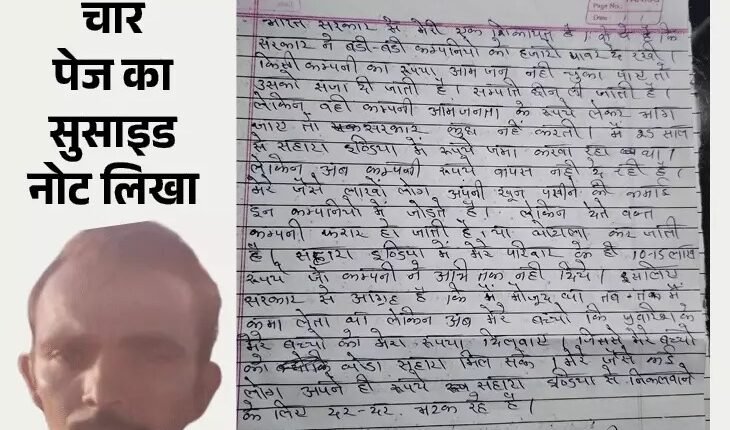 चार
पेज का
सुसाइड
नोट लिखा
Page No.
Date
भारत सरकार से मेरी एक शिकायत है। वो ये है कि
सरकार ने बडी-बडी कम्पनियो को हजारो पावर दे रखी।
किसी कम्पनी का रूपया आम जन नही चुका पाए तो
उसको सजा दी जाती है। सम्पति छीन ली जाती है।
लेकिन वही कम्पनी आमजनता के रूपये लेकर भाग
जाए तो सरकार कुछ नहीं करती। मैं 25 साल
से सहारा इण्डिया में रूपये जमा करवा रहा था।
लेकिन अब कम्पनी रूपये वापस नही दे रही है।
मेरे जैसे लाखो लोग अपनी खून पसीने की कमाई
इन कम्पनियो में जोडते है। लेकिन देते वक्त
कम्पनी फरार हो जाती है, या घोटाला कर जाती
है। सहारा इण्डिया में मेरे परिवार के ही 10-15 लाख
रूपये जो कम्पनी ने अभी तक नही दिये। इसलिए
सरकार से आग्रह है कि मैं मौजूद था तब-तक मैं
कमा लेता था लेकिन अब मेरे बच्चो कि परवरिश के
मेरे बच्चो को मेरा रूपया दिलवाए। जिससे मेरे बच्चो
को थोडा सहारा मिल सके। मेरे जैसे कई
लोग अपने ही रूपये सहारा इण्डिया से निकलवाने
के लिए दर-दर भटक रहे है।